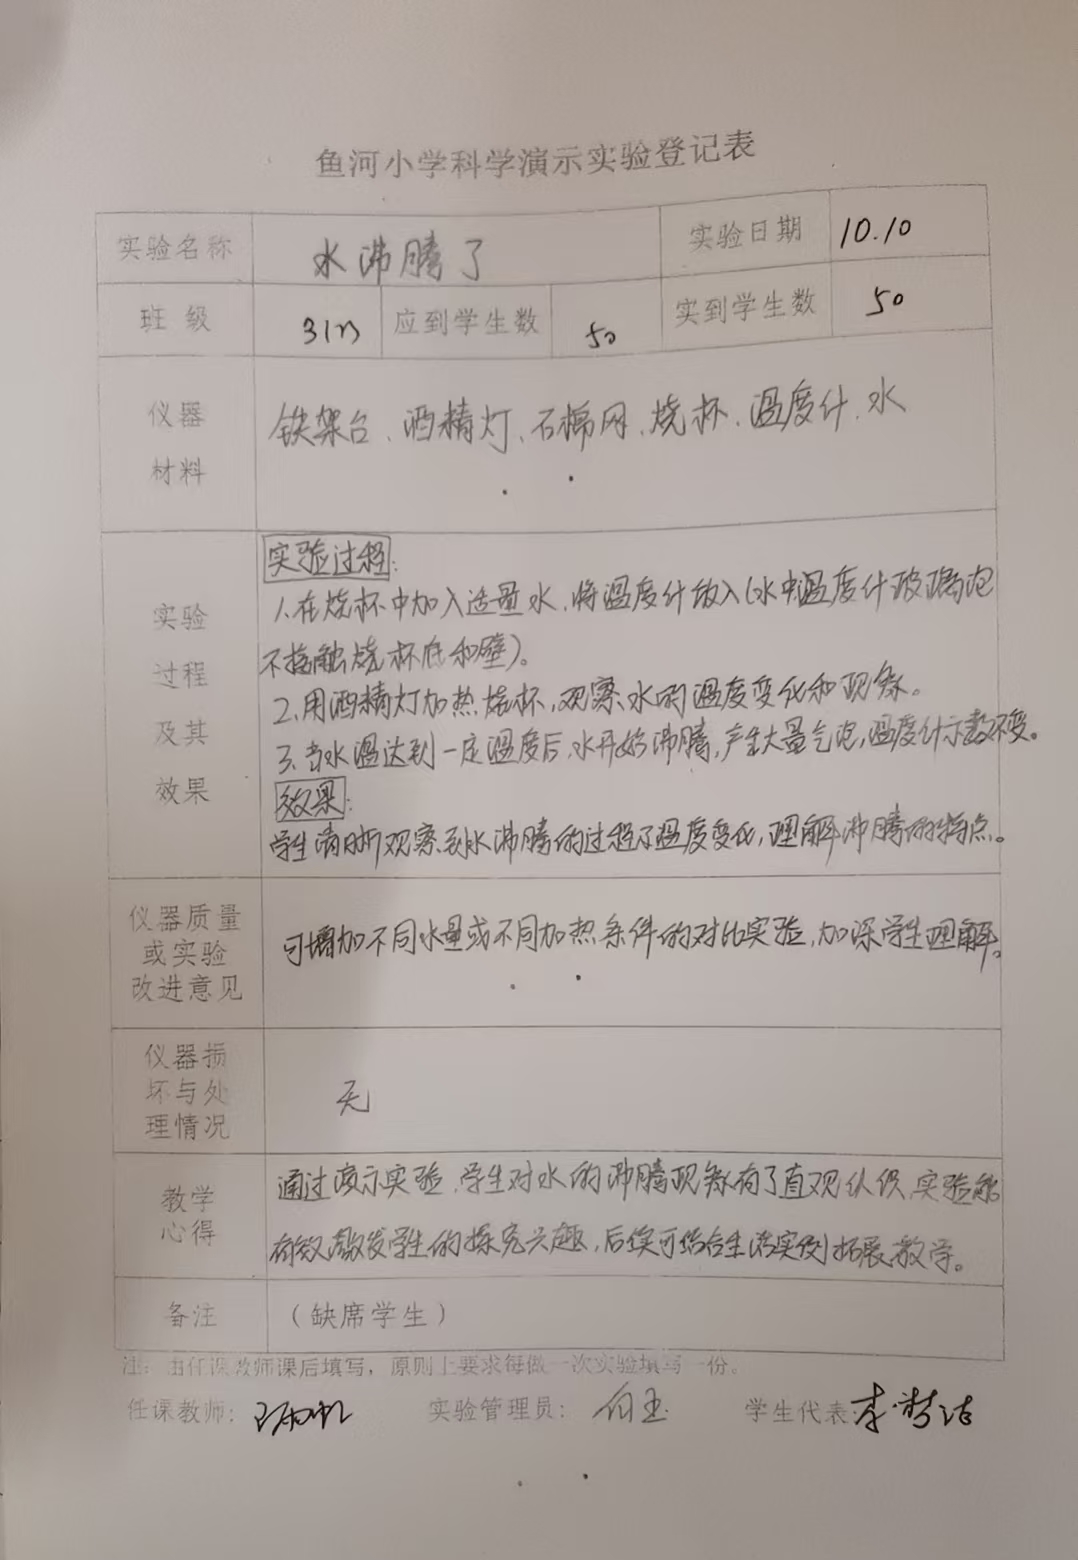 鱼河小学科学演示实验登记表
实验名称 水沸腾了 实验日期 10.10
班 级 3(1) 应到学生数 50 实到学生数 50
仪器
材料
铁架台、酒精灯、石棉网、烧杯、温度计、水
实验
过程
及其
效果
实验过程:
1.在烧杯中加入适量水,将温度计放入(水中温度计玻璃泡
不接触烧杯底和壁)。
2.用酒精灯加热烧杯,观察水的温度变化和现象。
3.当水温达到一定温度后,水开始沸腾,产生大量气泡,温度计示数不变。
效果:
学生清晰观察到水沸腾的过程及温度变化,理解沸腾的特点。
仪器质量
或实验
改进意见
可增加不同水量或不同加热条件的对比实验,加深学生理解。
仪器损
坏与处
理情况
无
教学
心得
通过演示实验,学生对水的沸腾现象有了直观认识,实验能
有效激发学生的探究兴趣,后续可结合生活实例拓展教学。
备注 (缺席学生)
注:由任课教师课后填写,原则上要求每做一次实验填写一份。
任课教师: 实验管理员: 学生代表: 李梦洁